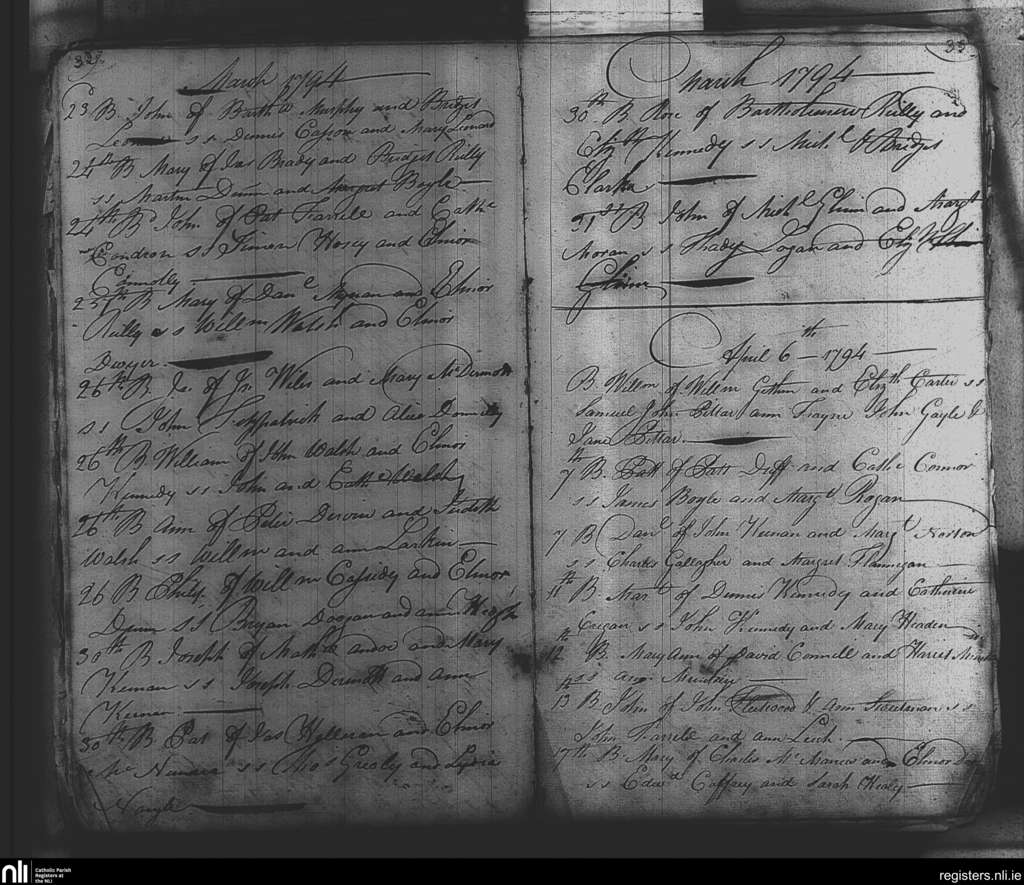 32
March 1794
23 B. John of Barthw Murphy and Bridget
Leonard s s Dennis Casson and Mary Leonard
24th B Mary of Jas Brady and Bridget Reilly
ss Martin Dunn and Margret Boyle
24th B John of Pat Farrell and Cathe
Condron ss Simon Hosey and Elinor
Connolly
25th B Mary of Danl and Elinor
Reilly s s Willm Walsh and Elinor
Dwyer
26th B Js. of Js. Wiles and Mary McDermott
ss John Fitzpatrick and Alice Donnelly
26th B William of John Walsh and Elinor
Kennedy ss John and Cathe Walsh
26th B Ann of Peter and Judith
Walsh s s Willm and ann Larkin
26 B Philip of Willm Cassidy and Elinor
Dunn SS Bryan and ann Keogh
30th B Joseph of and Mary
Kernan s s Joseph Dermott and ann
Keenan
30th B Pat of Jas Halleran and Elinor
Mc s s Thos Grealy and Lydia
Nangle
33
March 1794
30th B Rose of Bartholomew Reilly and
Elizth Kennedy s s Michl & Bridget
Clarke
31st B John of Michl Glinn and Margt
Moran s s Thady Logan and Eliz
Glinn
April 6th - 1794
B Willm of Willm and Elizth Carter ss
Samuel John Pittar ann Frayne John Gayle &
Jane Pittar
7th B. Patt of Patt Duff and Cathe Connor
ss James Boyle and Margt Rogan
7 B Danl of John Keenan and Margt Norton
s s Charles Gallagher and Margret Flannegan
11th B Mart of Dennis Kennedy and Catherine
Creegan s s John Kennedy and Mary Headen
12th B. Mary Ann of David Connell and Harriet
ss ann
13th B John of John Fleetwood & ann s s
John Farrell and ann Leech
17th B Mary of Charles McManus and Elinor
ss Edwd Caffrey and Sarah Healy
nli
Catholic Parish
Registers at
the NLI
registers.nli.ie